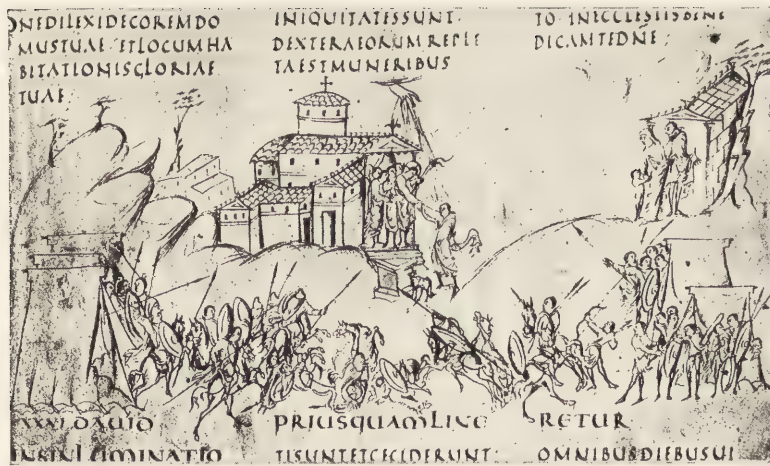 DNEDILEXIDECOREMDO
MUSTUAE·ETLOCUMHA
BITATIONISGLORIAE
TUAE·
INIQUITATESSUNT·
DEXTERAEORUMREPLE
TAESTMUNERIBUS
TO· INECCLESIISBENE
DICAMTEDNE;
XXVI DAUID
DNSINLUMINATIO
PRIUSQUAMLINE
TISUNTETCECIDERUNT·
RETUR
OMNIBUSDIEBUSUI